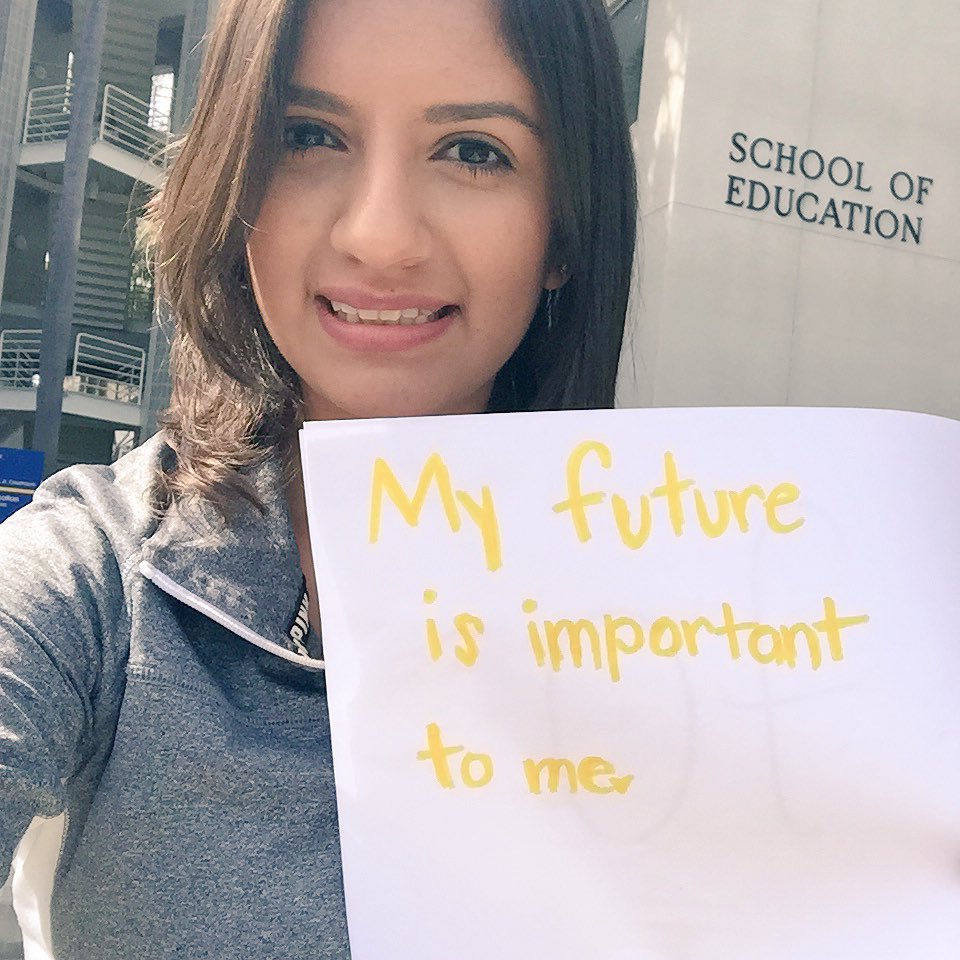 SCHOOL OF
EDUCATION
My future
is important
to me.